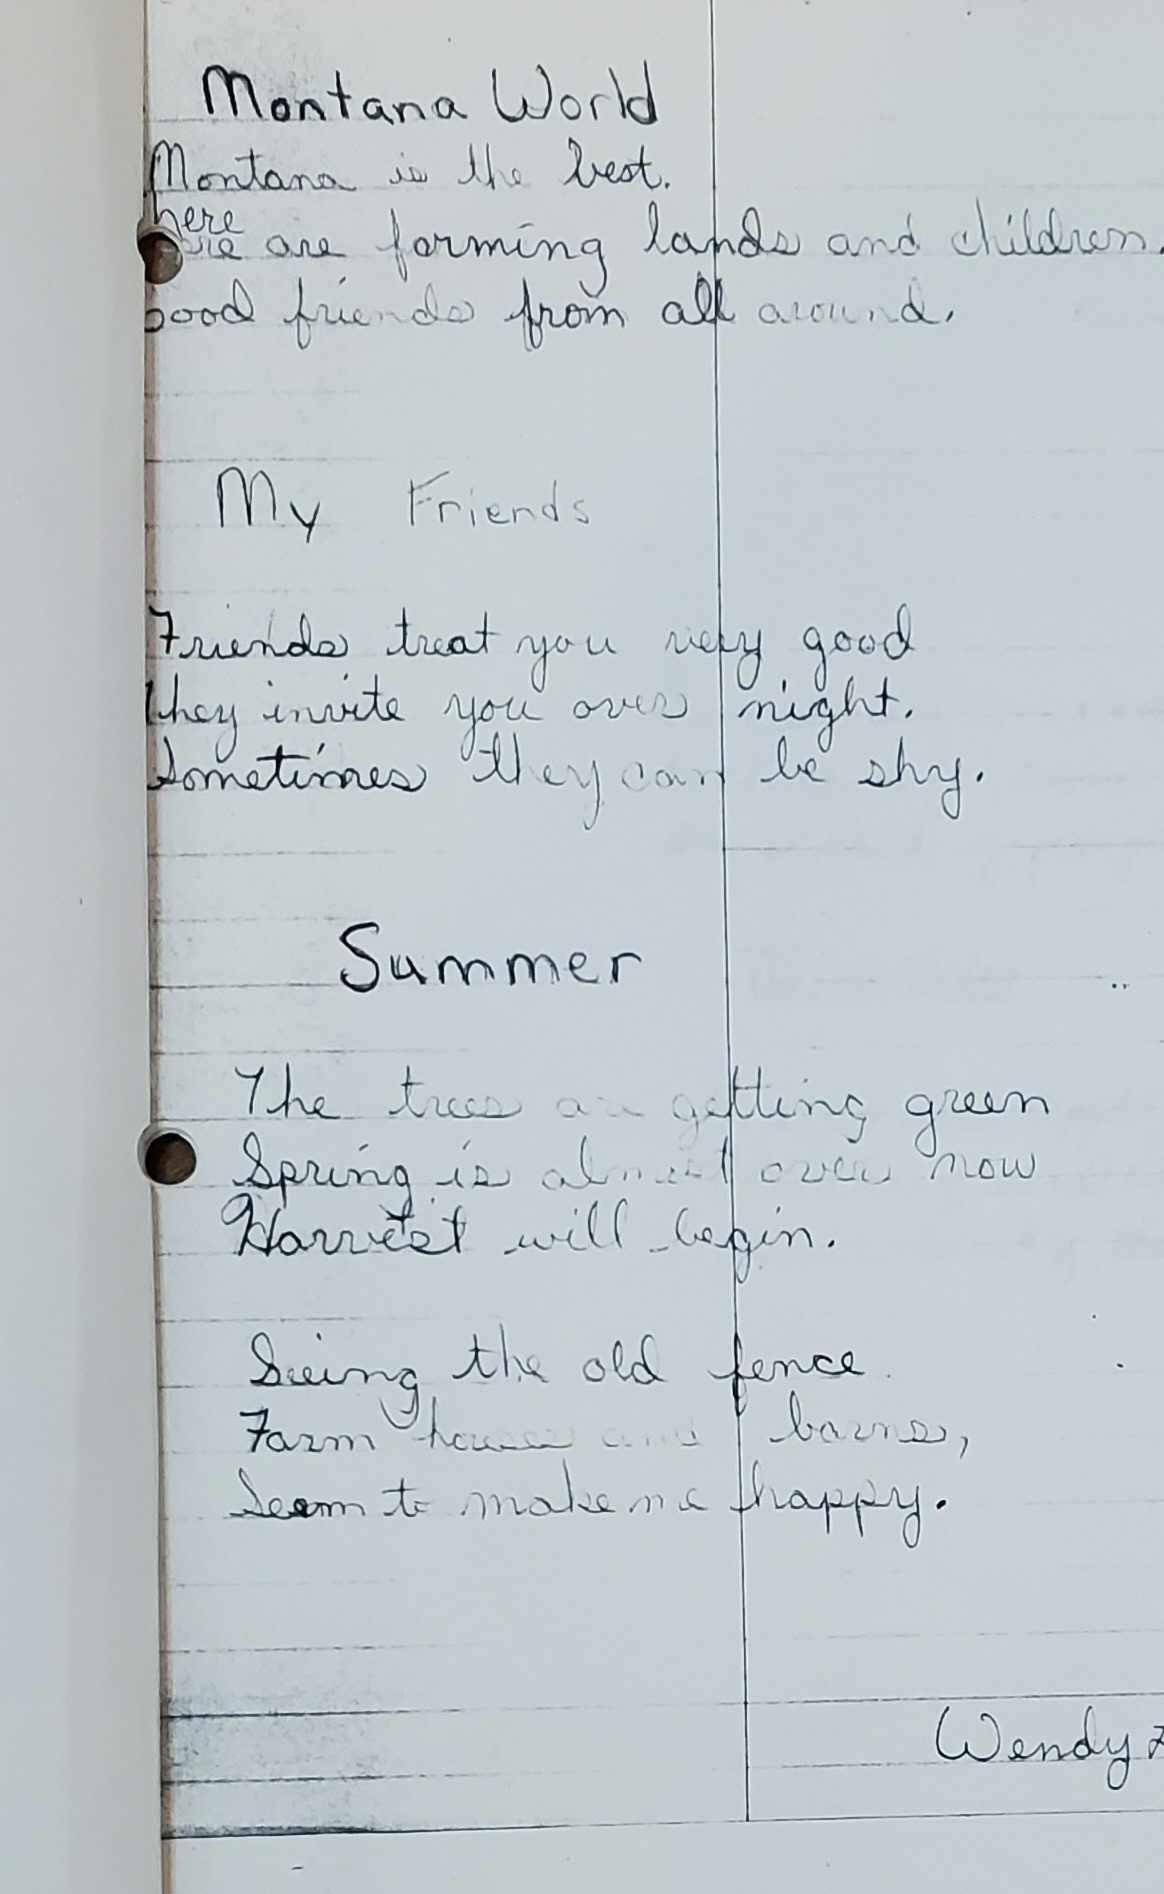 Montana World
Montana is the best.
here
are farming lands and children.
Good friends from all around.
My Friends
Friends treat you very good
they invite you over night.
Sometimes they can be shy.
Summer
The trees are getting green
Spring is almost over now
Harvest will begin.
Seeing the old fence
Farm houses and barns,
Seem to make me happy.
Wendy